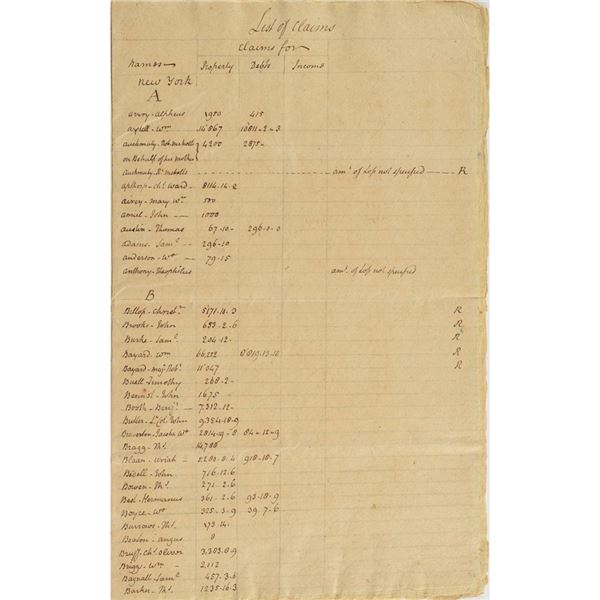 List of Claims
Claims for
Names Property Debts Income
New York
A
Avery - Alpheus 1950 415
Axtell - Wm 14'867 10811 - 2 - 3
Auchmuty - Robt Nicholls 4200 2875 -
on Behalf of his Mother
Auchmuty - Rt Nicholls amt. of Loss not specified R
Apthorp - Chs Ward - 8114 . 14 . 2
Airey - Mary Wm 500
Amiel - John 1000
Austin - Thomas 67 . 10 - 296 . 0 . 0
Adams - Saml 296 - 10
Anderson - Wm 79 . 15
Anthony - Theophilus amt. of Loss not specified
B
Billop - Christr 5171 . 10 . 3 R
Brooks - John 655 . 2 . 6 R
Burke - Saml 204 . 12 - R
Bayard - Wm 66,202 R
Bayard - Maj Robt 11'047 R
Buell - Timothy 268 . 2 -
Bennet - John 1675
Booth - Benjn 7,312 . 12 -
Butler - Lt Col. John 9,384 . 10 . 9
Jacob Wm 84 - 12 - 9
Bragg - Ths 14,700
Blaau - Uriah 5,280 . 0 . 4 918 . 10 . 7
Bedell - John 716 . 12 . 6
Bowen - Ths 271 . 2 . 6
Best - Hermanus 361 . 2 . 6 93 . 18 . 9
Boyce - Wm 325 . 3 . 9 39 . 7 . 6
Burrows - Ths 173 . 14 .
Beaton - Angus 8
Bruff - Chs Oliver 3,383 . 0 . 9
Briggs - Wm 2,112
Bagnall - Saml 457 . 3 . 6
Barker - Ths 1235 . 16 . 3